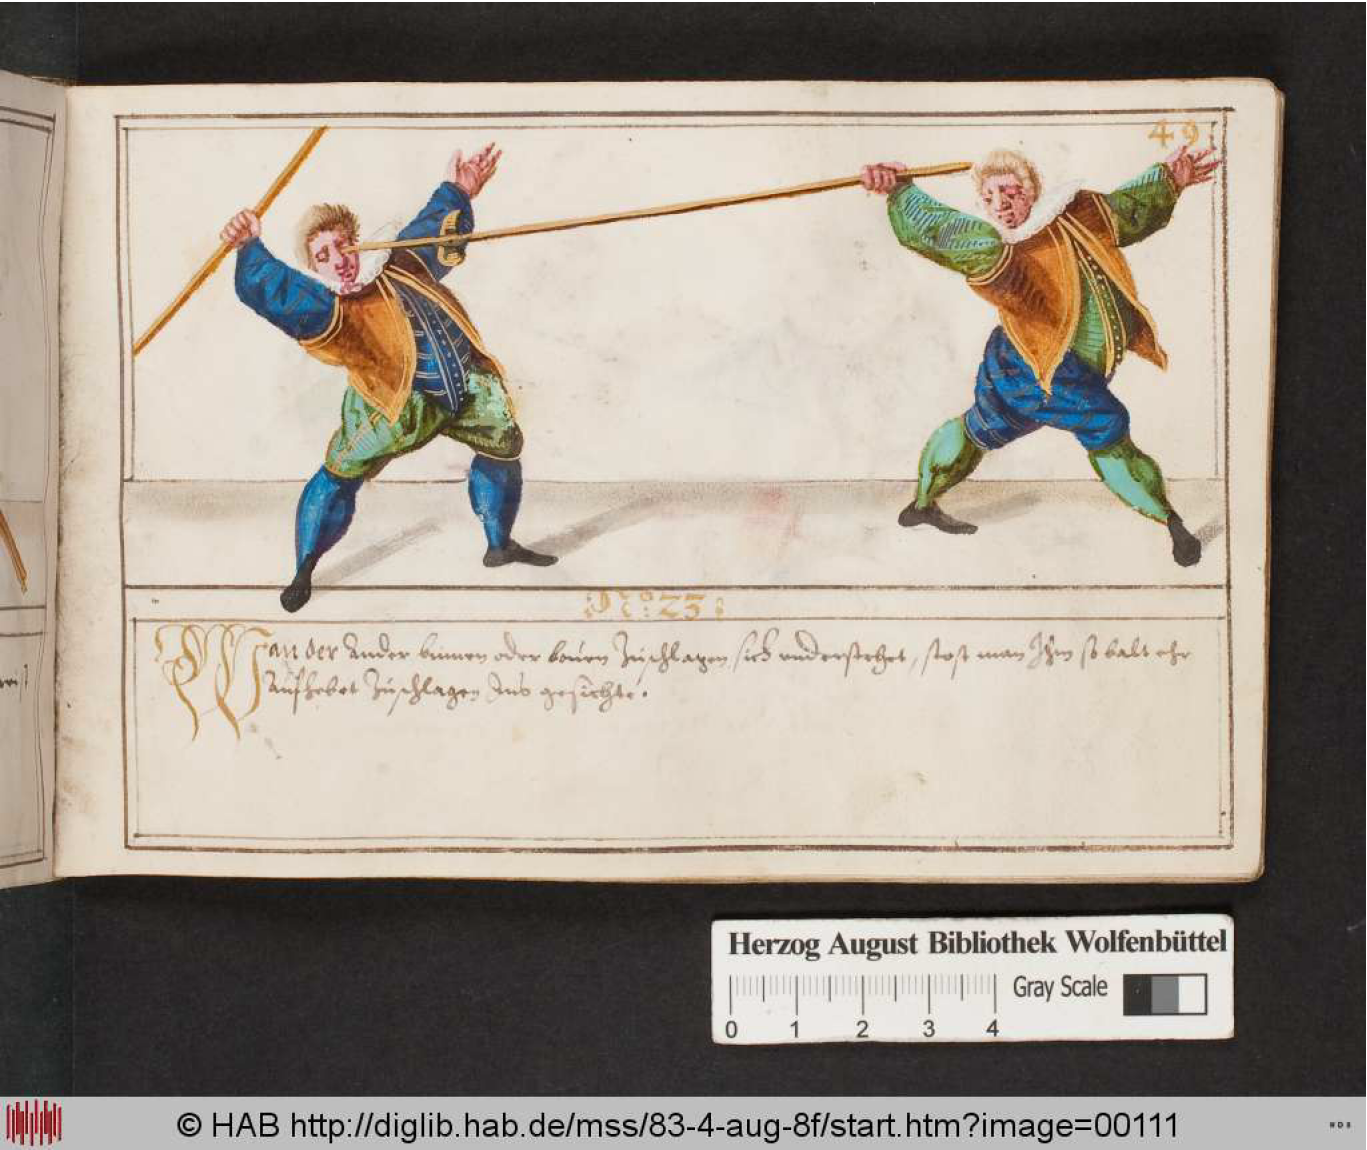 49
N° 23
Wan der Ander binnen oder bauen Zuschlagen sich understehet, stost man Ihm so balt ehr
Aufhebet Zuschlagen Ins gesichte.
Herzog August Bibliothek Wolfenbüttel
Gray Scale
0 1 2 3 4
© HAB http://diglib.hab.de/mss/83-4-aug-8f/start.htm?image=00111